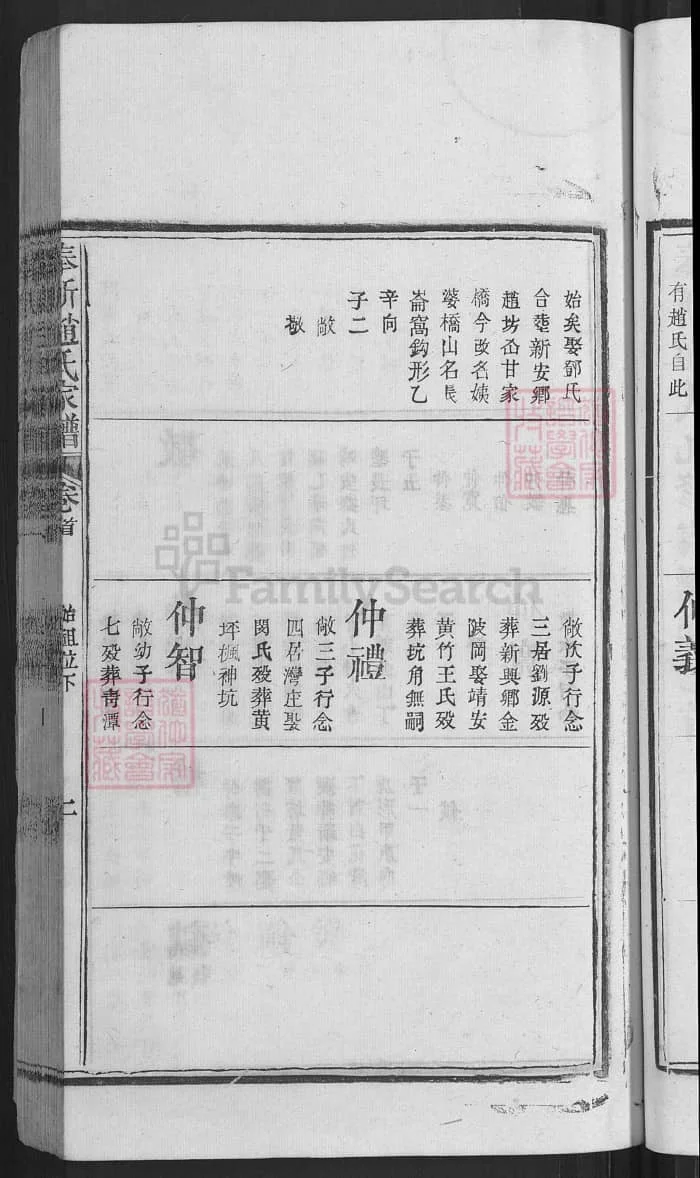 有趙氏自此
仲義
始矣娶鄧氏
合塟新安鄉
趙坊岙甘家
橋今改名姨
婆橋山名長
崙窩鈎形乙
辛向
子二
敞
敬
敞次子行念
三居劉源殁
葬新興鄉金
陂岡娶靖安
黄竹王氏殁
葬坑角無嗣
仲禮
敞三子行念
四居灣庄娶
閔氏殁葬黄
坪楓神坑
仲智
敞幼子行念
七殁葬青潭
奉新趙氏家譜
卷首
始祖位下
一
二
FamilySearch